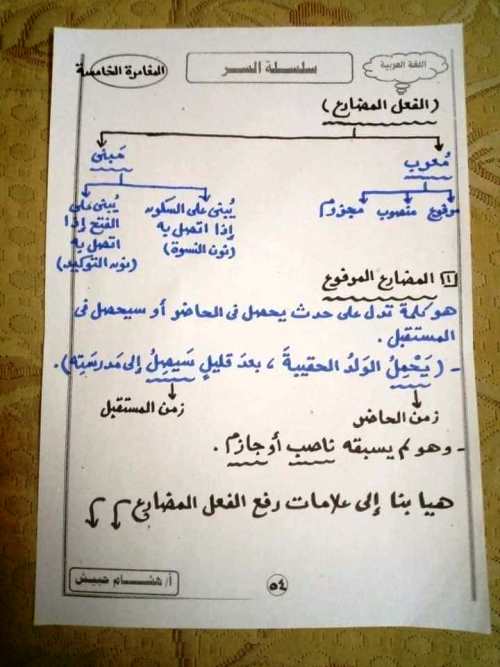 اللغة العربية
سلسلة السر
المغامرة الخامسة
(الفعل المضارع)
مُعرب
مَبنى
مرفوع منصوب مجزوم
يُبنى على السكون
إذا اتصل به
(نون النسوة)
يُبنى على
الفتح إذا
اتصل به
(نون التوكيد)
١ المضارع المرفوع
هو كلمة تدل على حدث يحصل فى الحاضر أو سيحصل فى
المستقبل.
- (يَحْمِلُ الوَلدُ الحقيبةَ ، بعدَ قليلٍ سَيَصِلُ إلى مَدرسَتِه).
زمن الحاضر
زمن المستقبل
- وهو لم يسبقه ناصب أو جازم.
هيا بنا إلى علامات رفع الفعل المضارع
أ/ هشام حبيش
٥٤